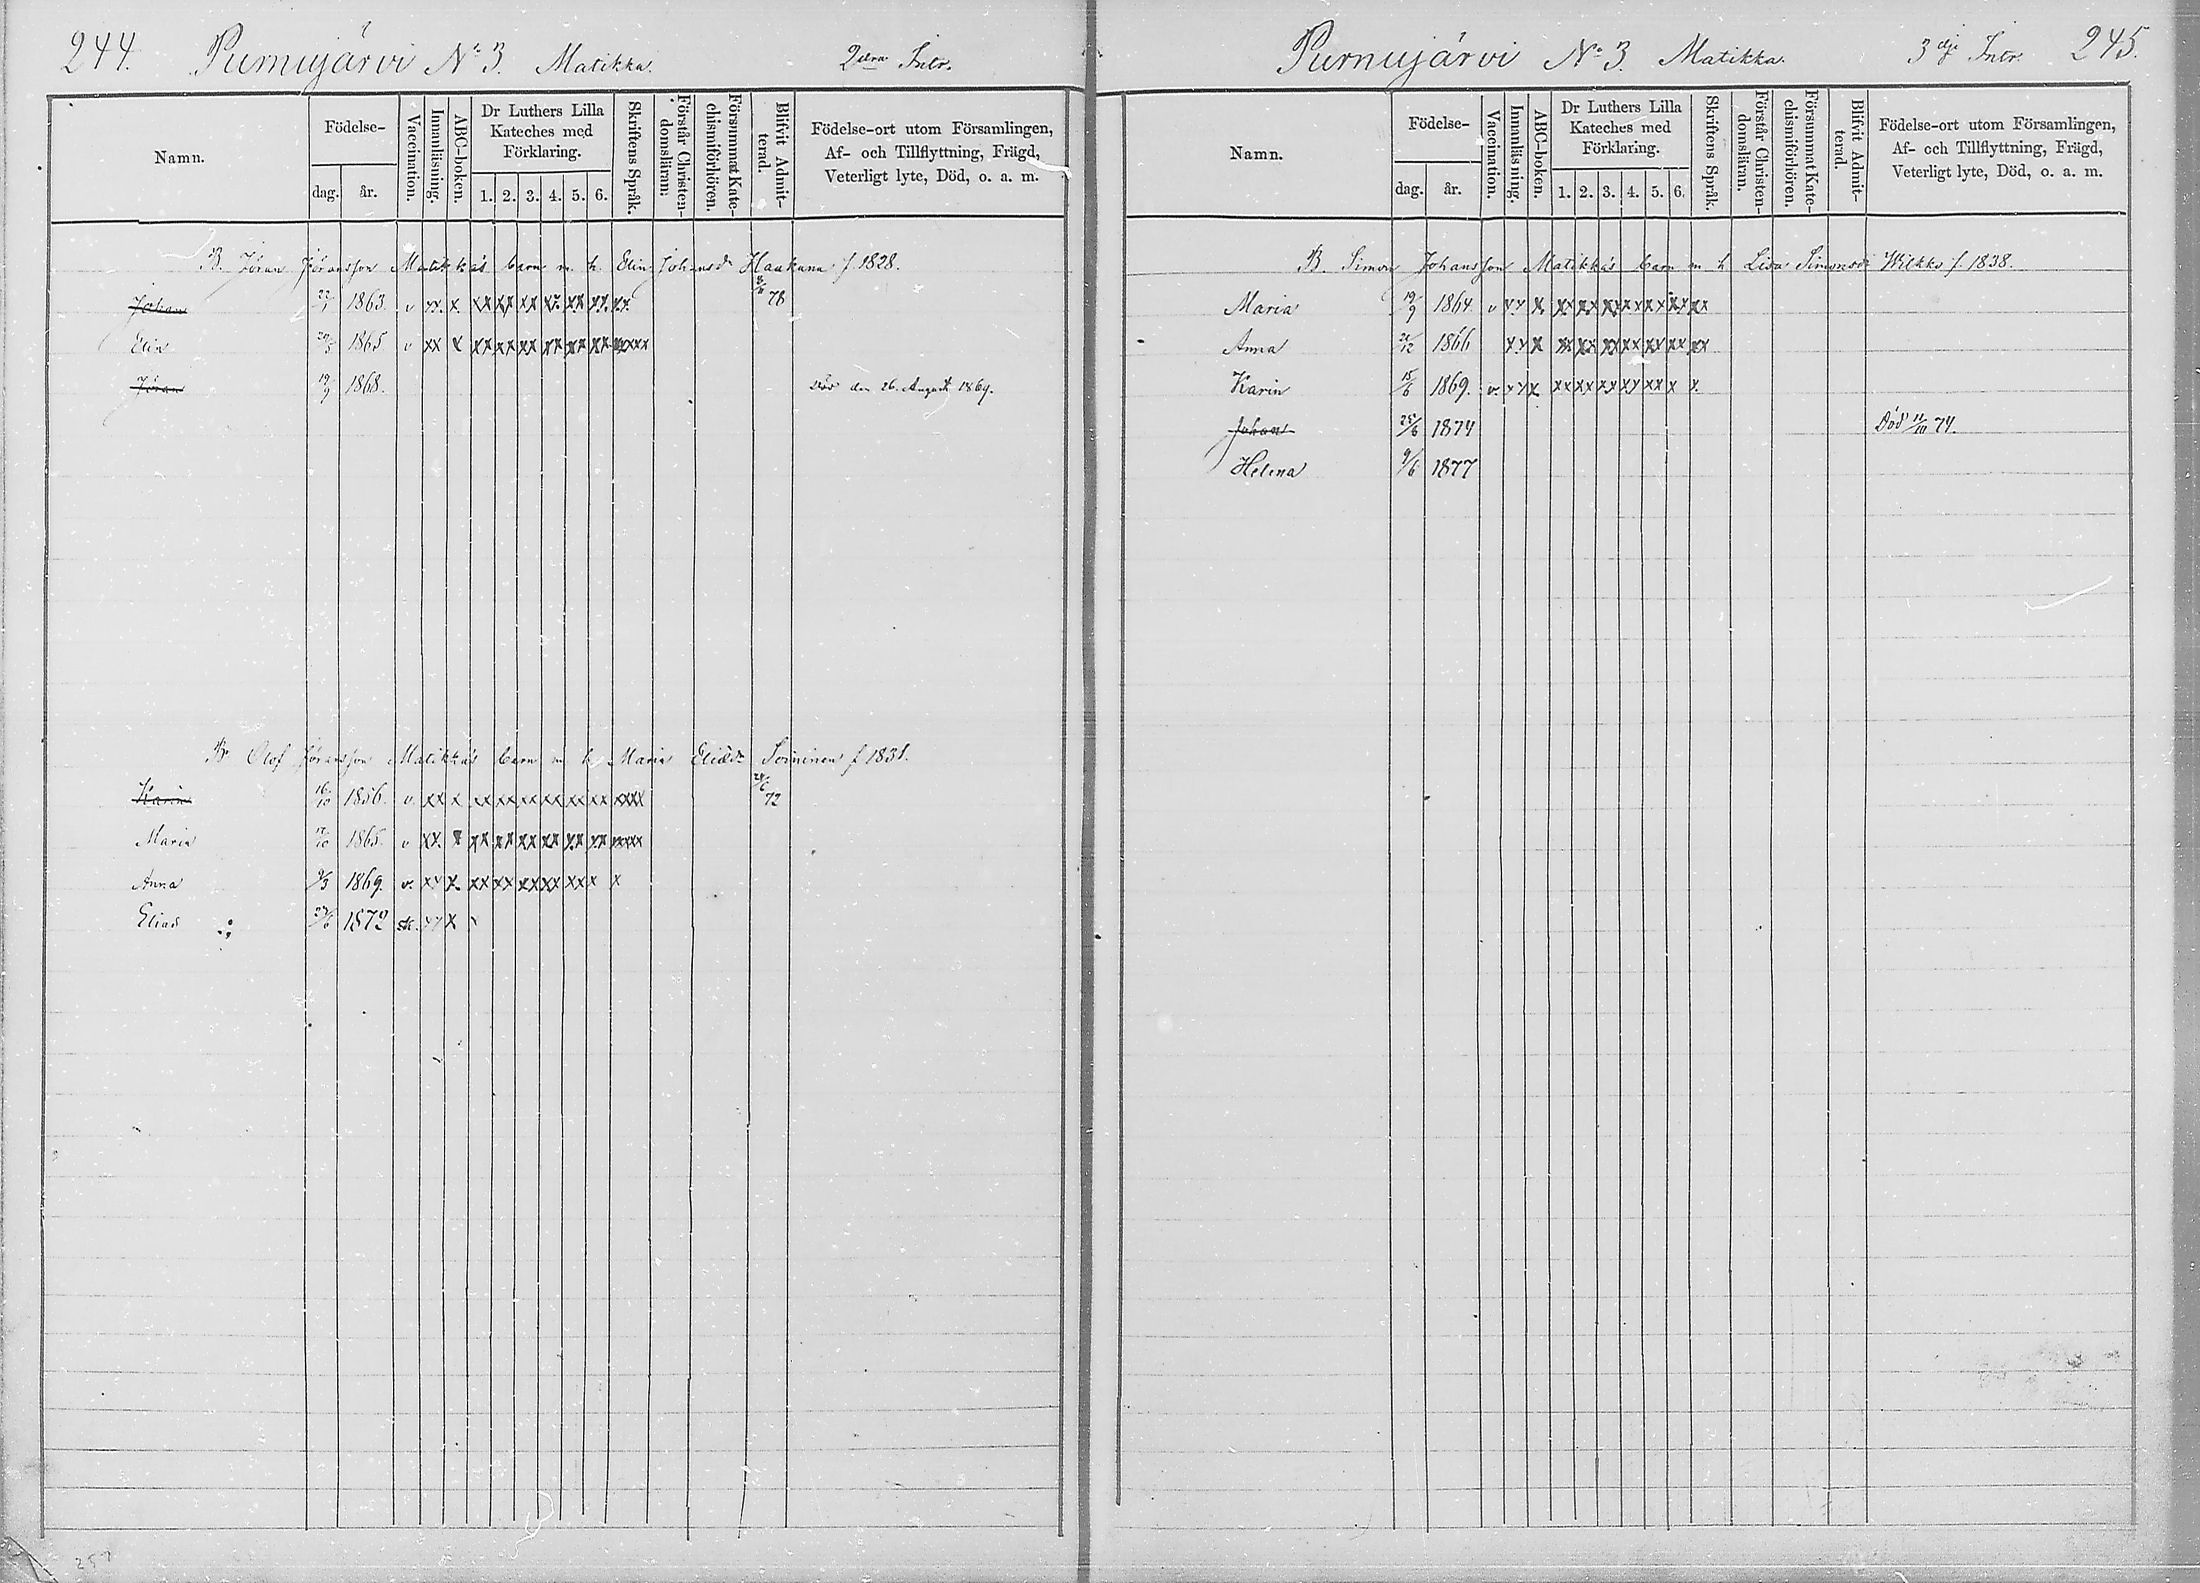 244. Purnujärvi No 3. Matikka. 2dra Intr.
Namn.
Födelse-
dag. år.
Vaccination.
Innanläsning.
ABC-boken.
Dr Luthers Lilla
Kateches med
Förklaring.
1. 2. 3. 4. 5. 6.
Skriftens Språk.
Förstår Christen-
domsläran:
Försummat Kate-
chismiförhören.
Blifvit Admit-
terad.
Födelse-ort utom Församlingen,
Af- och Tillflyttning, Frägd,
Veterligt lyte, Död, o. a. m.
B. Jöran Jöransson Matikka's barn m. h. Elin Johansdr Haakana f 1828.
Johan 1863. v xx. x xx xx xx xx xx xx. xx. 78
Elin 1865 v xx x xx xx xx xx xx xx xxxxx
Jöran 19/9 1868. död den 26. August 1869.
Br Olof Jöransson Matikka's barn m h Maria Eliædr Soininen f 1831.
Karin 16/10 1856. v. xx x xx xx xx xx xx xx xxxx 72
Maria 1865. v xx. x xx xx xx xx xx xx xxxx
Anna 9/3 1869. v. xx x xx xx xx xx xx x x
Elias 1872 sk. xx x
Purnujärvi No 3. Matikka. 3dje Intr. 245.
Namn.
Födelse-
dag. år.
Vaccination.
Innanläsning.
ABC-boken.
Dr Luthers Lilla
Kateches med
Förklaring.
1. 2. 3. 4. 5. 6.
Skriftens Språk.
Förstår Christen-
domsläran.
Försummat Kate-
chismiförhören.
Blifvit Admit-
terad.
Födelse-ort utom Församlingen,
Af- och Tillflyttning, Frägd,
Veterligt lyte, Död, o. a. m.
B. Simon Johansson Matikka's barn m h Lisa Simonsdr Wilkko f. 1838.
Maria 19/9 1864. v xx x xx xx xx xx xx xx xx
Anna 1866 xx x xx xx xx xx xx xx xx
Karin 15/6 1869. v. xx x xx xx xx xx xx x x.
Johan 25/6 1874 Död 11/10 74.
Helena 9/6 1877
257